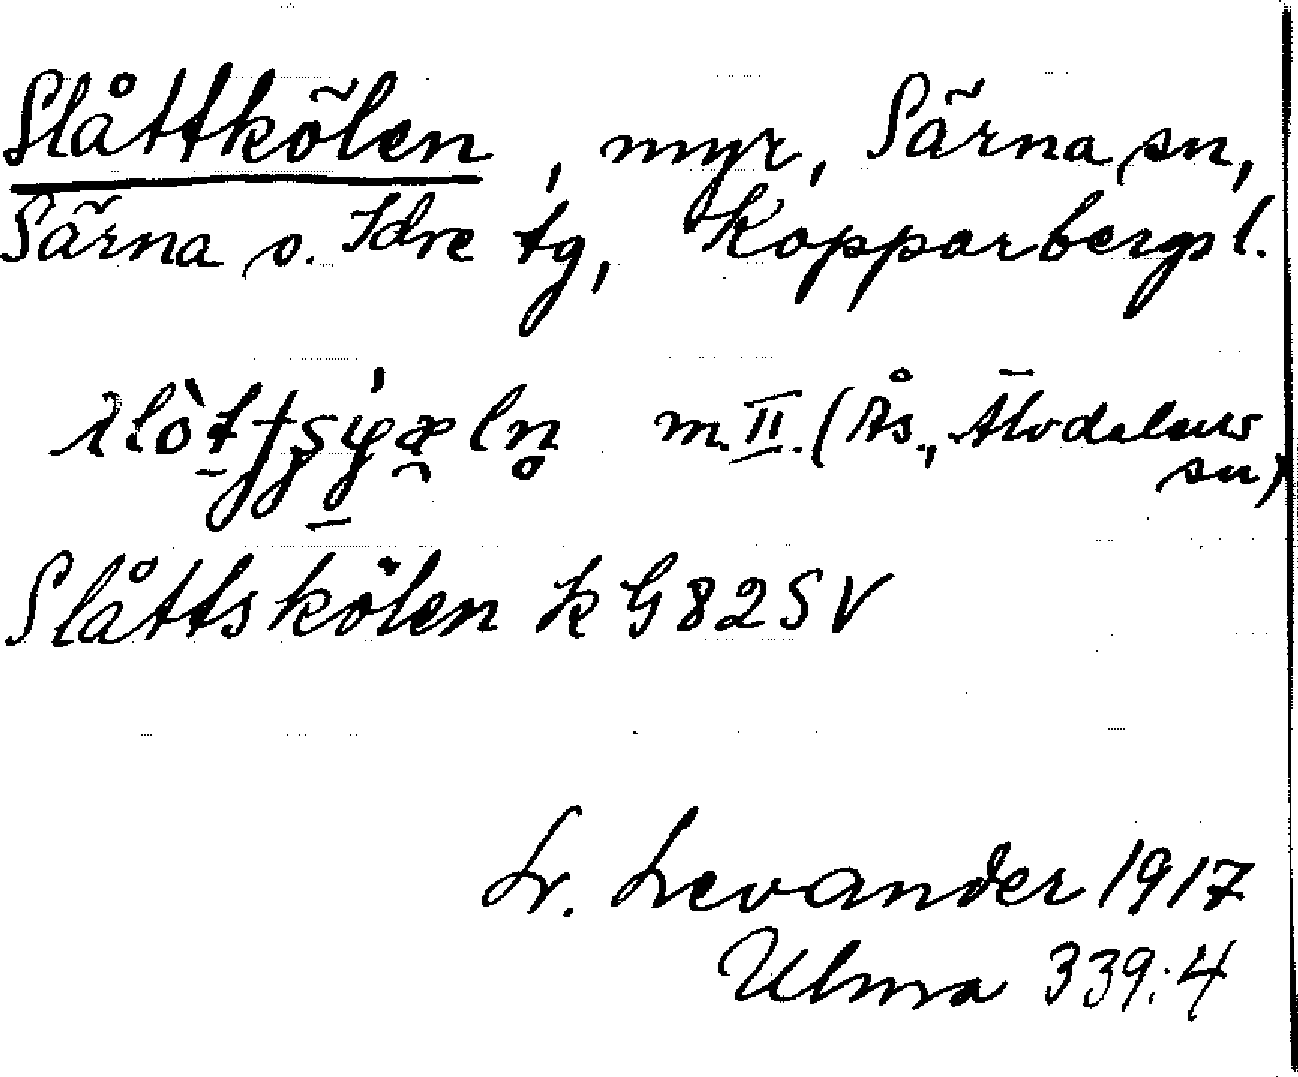 Slåttkölen, myr, Särna sn,
Särna o. Idre tg, Kopparbergs l.
m. II. (Ås, Älvdalens
sn)
Slåttskölen k G82SV
L. Levander 1917
Ulma 339:4